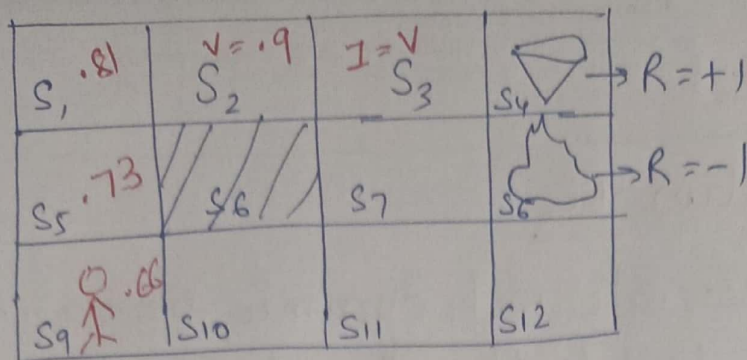 S1 .81 V = .9 S2 1 = V S3 S4 → R = +1
S5 .73 S6 S7 S6 → R = -1
S9 .66 S10 S11 S12